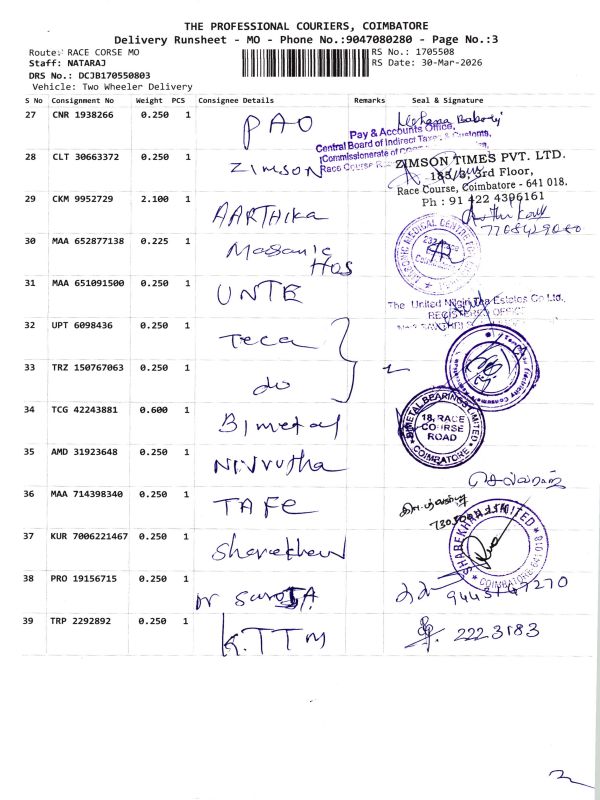 THE PROFESSIONAL COURIERS, COIMBATORE
Delivery Runsheet - MO - Phone No.:9047080280 - Page No.:3
Route: RACE CORSE MO
RS No.: 1705508
Staff: NATARAJ
RS Date: 30-Mar-2026
DRS No.: DCJB170550803
Vehicle: Two Wheeler Delivery
S No Consignment No Weight PCS Consignee Details Remarks Seal & Signature
27 CNR 1938266 0.250 1 PAO
Pay & Accounts Office,
Central Board of Indirect Taxes & Customs,
28 CLT 30663372 0.250 1 ZIMSON
ZIMSON TIMES PVT. LTD.
185/3, 3rd Floor,
Race Course, Coimbatore - 641 018.
Ph : 91 422 4396161
29 CKM 9952729 2.100 1 AARTHIKA
30 MAA 652877138 0.225 1 Masonic
Hos
MASONIC MEDICAL CENTRE
31 MAA 651091500 0.250 1 UNTE
The United Nilgiri Tea Estates Co Ltd.,
REGISTERED OFFICE
32 UPT 6098436 0.250 1 Teca
33 TRZ 150767063 0.250 1 do
34 TCG 42243881 0.600 1 Bimetal
BIMETAL BEARINGS LIMITED
18, RACE
COURSE
ROAD
COIMBATORE
35 AMD 31923648 0.250 1
செல்வராஜ்
36 MAA 714398340 0.250 1 TAFE
37 KUR 7006221467 0.250 1 Sharekhan
SHAREKHAN LIMITED
COIMBATORE-641 018
38 PRO 19156715 0.250 1
9443147270
39 TRP 2292892 0.250 1 K.TTM
222 3183